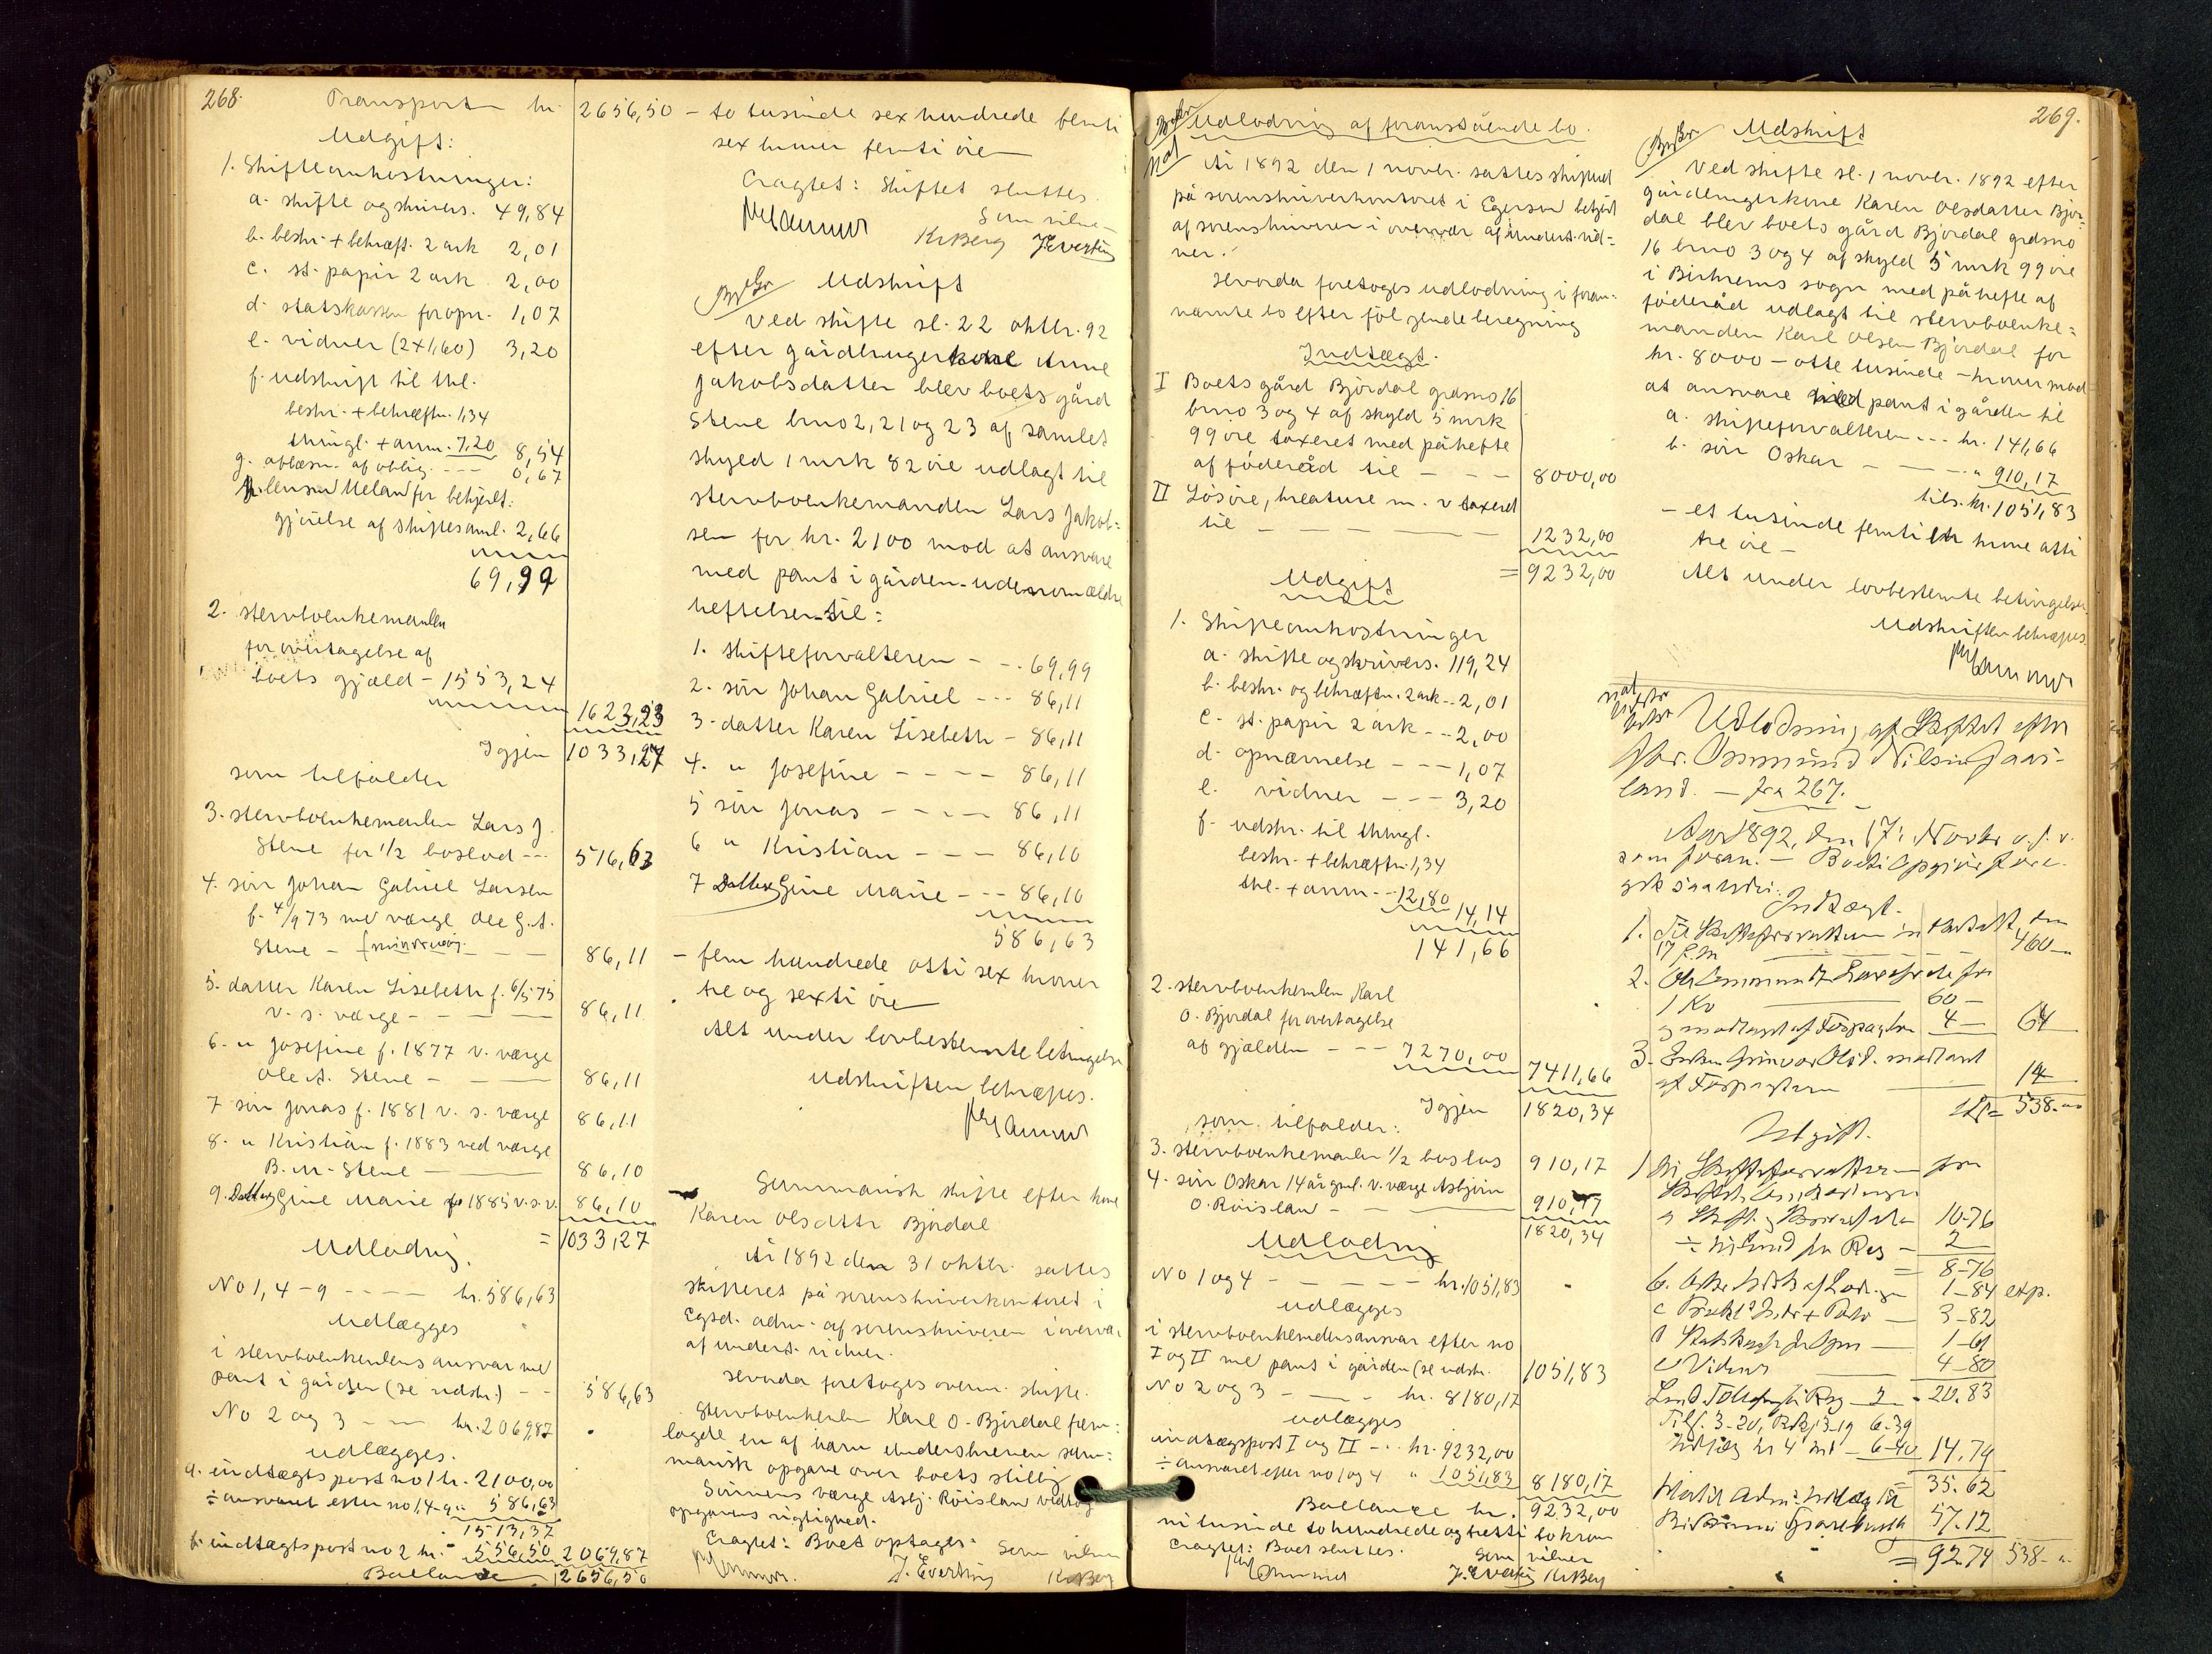 268.
Transport kr. 2656,50 – to tusinde sex hundrede femti
sex kroner femti öre
Udgift:
1. Skifteomkostninger:
a. skifte og skrivers. 49,84
b. beskr. + bekræft. 2 ark 2,01
c. st. papir 2 ark 2,00
d. statskassen for opn. 1,07
e. vidner (2 x 1,60) 3,20
f. udskrift til thl.
beskr. + bekræftn. 1,34
thingl. + anm. 7,20 8,54
g. aflæsn. af oblig. --- 0,67
h. lensm Meland for bekjendt:
gjörelse af skiftesaml. 2,66
69,99
2. stervboenkemanden
for overtagelse af
boets gjæld – 1553,24
1623,23
Igjen 1033,27
som tilfalder
3. stervboenkemanden Lars J.
Stene for 1/2 boslod --- 516,63
4. sön Johan Gabriel Larsen
f. 4/9 73 med værge Ole G. A.
Stene – 86,11
5. datter Karen Lisebeth f. 6/5 75
v. s. værge – – – 86,11
6. " Josefine f. 1877 v. værge
Ole A. Stene – — 86,11
7 sön Jonas f. 1881 v. s. værge 86,11
8. " Kristian f. 1883 ved værge
B. M. Stene — — 86,10
9. Datter Gine Marie f. 1885 v. s. v. 86,10
= 1033,27
Udlodning.
No 1, 4 – 9 - - - - kr. 586,63
Udlægges
i stervboenkemandens ansvar med
pant i gården (se udskr.) – – 586,63
No 2 og 3 – — kr. 2069,87
udlægges.
a. indtægtspost no 1 kr. 2100,00
÷ ansvaret efter no 1, 4-9 " 586,63
1513,37
b. indtægtspost no 2 kr. " 556,50 2069,87
Ballance 2656,50
Eragtet: Skiftet sluttes.
Som vidne
K. Berg J. Evertsen
Udskrift
Ved skifte sl. 22 oktbr. 92
efter gårdbrugerkone Anne
Jakobsdatter blev boets gård
Stene brno 2, 21 og 23 af samlet
skyld 1 mrk 82 öre udlagt til
stervboenkemanden Lars Jakob=
sen for kr. 2100 mod at ansvare
med pant i gården – udenom ældre
heftelser – til:
1. skifteforvalteren – – . 69,99
2. sön Johan Gabriel --- 86,11
3. datter Karen Lisebeth – 86,11
4. " Josefine – – – – 86,11
5 sön Jonas – – — 86,11
6 " Kristian – – – 86,10
7 Datter Gine Marie – – – 86,10
586,63
– fem hundrede otti sex kroner
tre og sexti öre
Alt under lovbestemte betingelser
Udskriften bekræftes.
Summarisk skifte efter kone
Karen Olsdttr Björdal
År 1892 den 31 oktbr. sattes
skifteret på sorenskriverkontoret i
Egsd. adm. af sorenskriveren i overvær
af underts. vidner.
Hvorda foretoges ovenn. skifte.
Stervboenkemanden Karl O. Björdal frem=
lagde en af ham underskreven sum=
marisk opgave over boets stilling
Sönnens værge Asbj. Röisland vedtog
opgavens rigtighed.
Eragtet: Boet optages. Som vidner
J. Evertsen K. Berg
269.
Udlodning af foranstående bo.
År 1892 den 1 novbr. sattes skifteret
på sorenskriverkontoret i Egersund betjent
af sorenskriveren i overvær af underts. vid=
ner.
Hvorda foretoges udlodning i foran=
nævnte bo efter fölgende beregning
Indtægt.
I Boets gård Björdal grdsno 16
brno 3 og 4 af skyld 5 mrk
99 öre taxeret med påhefte
af föderåd til – – – 8000,00
II Lösöre, kreature m. v. taxeret
til – — — — 1232,00
= 9232,00
Udgift
1. Skifteomkostninger
a. skifte og skrivers. 119,24
b. beskr. og bekræftn. 2 ark -- 2,01
c. st. papir 2 ark --- 2,00
d. opnævnelse – – – 1,07
e. vidner – – – 3,20
f. udskr. til thingl.
beskr. + bekræftn. 1,34
thl. + anm. -- 12,80
14,14
141,66
2. stervboenkemanden Karl
O. Björdal for overtagelse
af gjælden – – – 7270,00
7411,66
Igjen 1820,34
som tilfalder:
3. stervboenkemanden 1/2 boslod 910,17
4. sön Oskar 14 år gml. v. værge Asbjörn
O. Röisland – – — 910,17
1820,34
Udlodning
No 1 og 4 – – – – – kr. 1051,83
udlægges
i stervboenkemandens ansvar efter no
I og II med pant i gården (se udskr. 1051,83
No 2 og 3 – – – kr. 8180,17
udlægges
indtægtspost I og II – .. kr. 9232,00
÷ ansvaret efter no 1 og 4 " 1051,83 8180,17
Ballance kr. 9232,00
ni tusinde to hundrede og tretti to kroner
Eragtet: Boet sluttes. Som vidner
J. Evertsen K. Berg
Udskrift
Ved skifte sl. 1 novbr. 1892 efter
gårdbrugerkone Karen Olsdatter Björ=
dal blev boets gård Björdal grdsno
16 brno 3 og 4 af skyld 5 mrk 99 öre
i Birkrems sogn med påhefte af
föderåd udlagt til stervboenke=
manden Karl Olsen Björdal for
kr. 8000 – otte tusinde – kroner mod
at ansvare med pant i gården til
a. skifteforvalteren --- kr. 141,66
b. sön Oskar – – — " 910,17
tils. kr. 1051,83
– et tusinde femti en krone otti
tre öre –
Alt under lovbestemte betingelser
Udskriften bekræftes
Udlodning af Skiftet efter
Gbr. Osmund Nilsen
land. — fra 267.
Aar 1892, den 17: Novbr
som foran. —
Indtægt.
1. Til Skifteforvalteren indbetalt den
17 460 —
2. Ole Osmundsen
1 Ko 60 —
og modtaget af 4 — 64
3. Enken modtaget
af 14
538.00
Udgift.
1 Til Skifteforvalteren for
a 10-76
÷ 2
= 8-76
b. 1-84 exp.
c 3-82
d Statskassen for Opn — 1-61
e Vidner 4-80
20.83
6-39
6-40 14.79
= 35.62
57.12
= 92.74 538-